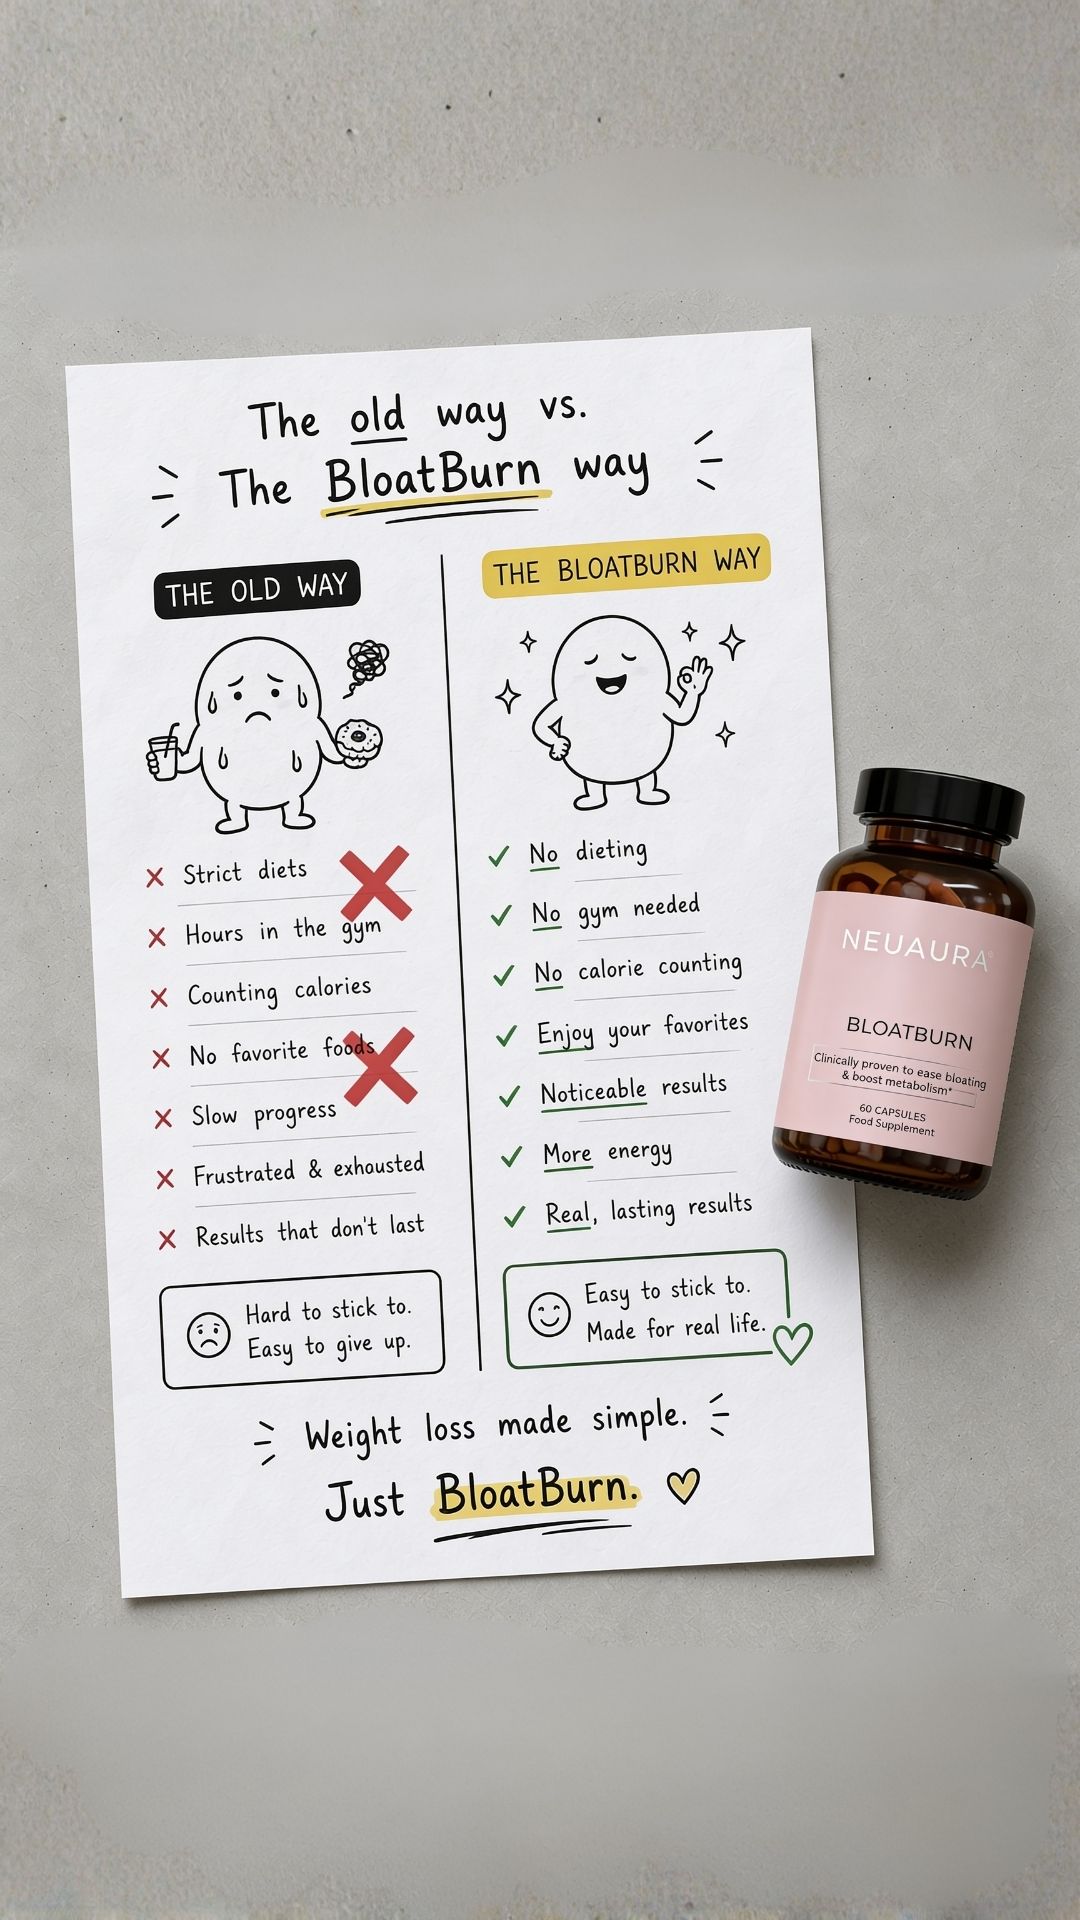 The old way vs.
The BloatBurn way
THE OLD WAY
Strict diets
Hours in the gym
Counting calories
No favorite foods
Slow progress
Frustrated & exhausted
Results that don't last
Hard to stick to.
Easy to give up.
THE BLOATBURN WAY
No dieting
No gym needed
No calorie counting
Enjoy your favorites
Noticeable results
More energy
Real, lasting results
Easy to stick to.
Made for real life.
Weight loss made simple.
Just BloatBurn.
NEUAURA®
BLOATBURN
Clinically proven to ease bloating
& boost metabolism*
60 CAPSULES
Food Supplement